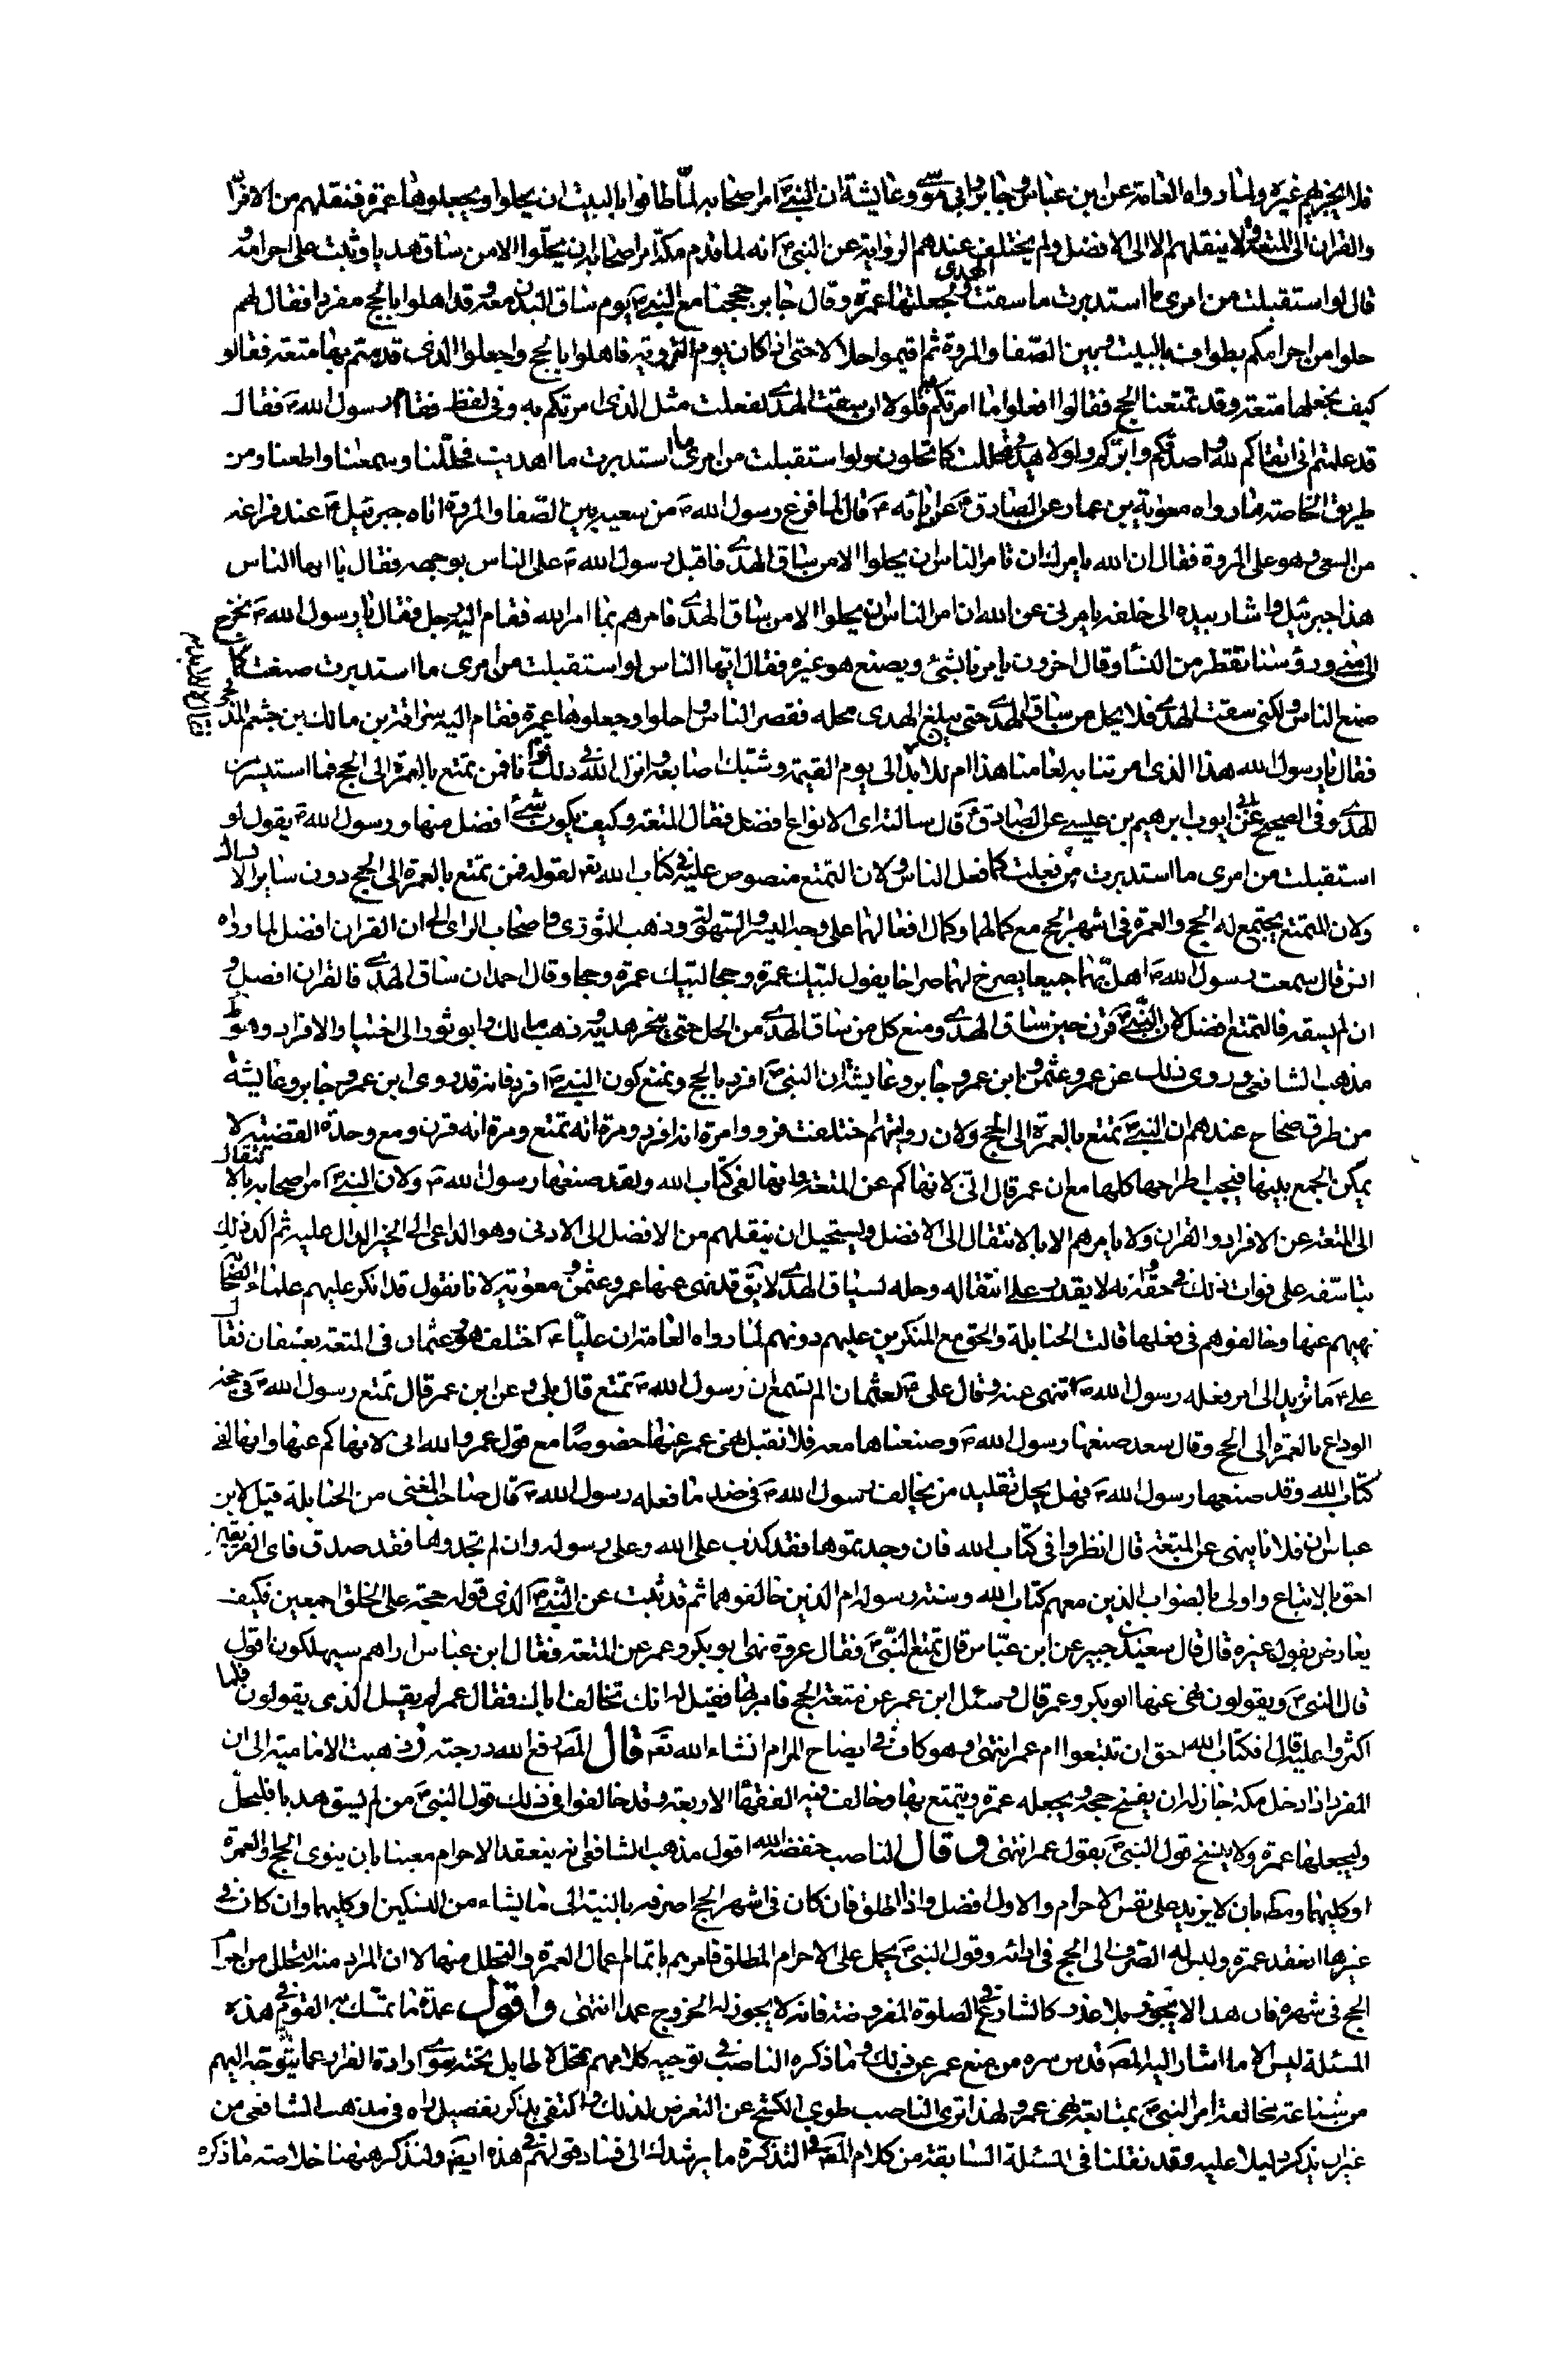 فلا يجزيهم غيره ولما رواه العامة عن ابن عباس وجابر وابي موسى وعايشة ان النبي ص امر اصحابه لما طافوا بالبيت ان يحلوا ويجعلوها عمرة فنقلهم من الافراد
والقران الى المتعة ولا ينقلهم الا الى الافضل ولم يختلف عندهم الرواية عن النبي ص انه لما قدم مكة امر اصحابه ان يحلوا الا من ساق هديا وثبت على احرامه و
قال لو استقبلت من امرى ما استدبرت ما سقت الهدى ولجعلتها عمرة وقال جابر حججنا مع النبي ص يوم ساق البدن معه وقد اهلوا بالحج مفردا فقال لهم
حلوا من احرامكم بطواف بالبيت وبين الصفا والمروة ثم اقيموا حلالا حتى اذا كان يوم التروية فاهلوا بالحج واجعلوا الذى قدمتم بها متعة فقالوا
كيف نجعلها متعة وقد تمتعنا الحج فقالوا افعلوا ما امرتكم به فلولا ان سقت الهدى لفعلت مثل الذى امرتكم به وفى لفظ فقام رسول الله ص فقال
قد علمتم انى اتقاكم لله واصدقكم وابركم ولولا هديى لحللت كما تحلون ولو استقبلت من امرى ما استدبرت ما اهديت فحللنا وسمعنا واطعنا ومن
طريق الخاصة ما رواه معوية بن عمار عن الصادق ع عن ابائه ع قال لما فرغ رسول الله ص من سعيه بين الصفا والمروة اتاه جبرئيل ع عند فراغه
من السعى وهو على المروة فقال ان الله يامرك ان تامر الناس ان يحلوا الا من ساق الهدى فاقبل رسول الله ص على الناس بوجهه فقال يا ايها الناس
هذا جبرئيل واشار بيده الى خلفه يامرنى عن الله ان امر الناس ان يحلوا الا من ساق الهدى فامرهم بما امر الله فقام اليه رجل فقال يا رسول الله ص نخرج
الى منى ورؤسنا تقطر من النساء وقال اخرون يامرنا بشئ ويصنع هو غيره فقال ايها الناس لو استقبلت من امرى ما استدبرت صنعت كما
صنع الناس ولكنى سقت الهدى فلا يحل من ساق الهدى حتى يبلغ الهدى محله فقصر الناس واحلوا وجعلوها عمرة فقام اليه سراقة بن مالك بن جشم المدلجى
فقال يا رسول الله هذا الذى امرتنا به لعامنا هذا ام للابد الى يوم القيمة وشبك اصابعه وانزل الله فى ذلك قرانا فمن تمتع بالعمرة الى الحج فما استيسر من
الهدى وفى الصحيح عن ابى ايوب ابرهيم بن عيسى عن الصادق ع قال سالته اى الانواع افضل فقال المتعة وكيف يكون شئ افضل منها ورسول الله ص يقول لو
استقبلت من امرى ما استدبرت فعلت كما فعل الناس ولان التمتع منصوص عليه فى كتاب الله تع لقوله فمن تمتع بالعمرة الى الحج دون ساير الانساك
ولان المتمتع يجتمع له الحج والعمرة فى اشهر الحج مع كمالهما وكمال افعالهما على وجه اليسر والسهولة وذهب الثورى واصحاب الراى الى ان القران افضل لما رواه
انس قال سمعت رسول الله ص اهل بهما جميعا يصرخ لهما صراخا يقول لبيك عمرة وحجا لبيك عمرة وحجا وقال احمد ان ساق الهدى فالقران افضل و
ان لم يسقه فالتمتع افضل لان النبي ص قرن حين ساق الهدى ومنع كل من ساق الهدى من الحل حتى ينحر هديه وذهب مالك وابو ثور الى اختيار الافراد وهو ظ
مذهب الشافعى وروى ذلك عن عمر وعثمن وابن عمر وجابر وعايشة ان النبي ص افرد بالحج ويمنع كون النبي ص افرد فانه قد روى ابن عمر وجابر وعايشة
من طرق صحاح عندهم ان النبي ص تمتع بالعمرة الى الحج ولان روايتهم اختلفت فرووا مرة انه افرد ومرة انه تمتع ومرة انه قرن ومع وحدة القضية لا
يمكن الجمع بينها فيجب اطراحها كلها مع ان عمر قال انى لانهاكم عن المتعة وانها لفى كتاب الله ولقد صنعها رسول الله ص ولان النبي ص امر اصحابه بالانتقال
الى المتعة عن الافراد والقران ولا يامرهم الا بالانتقال الى الافضل ويستحيل ان ينقلهم من الافضل الى الادنى وهو الداعى الى الخير الدال عليه ثم اكد ذلك
بتاسفه على فوات ذلك فى حقه وانه لا يقدر على انتقاله وحله لسياق الهدى لا يق قد نهى عنها عمر وعثمن ومعوية لانا نقول قد انكر عليهم علماء الصحابة
نهيهم عنها وخالفوهم فى فعلها قالت الحنابلة والحق مع المنكرين عليهم دونهم لما رواه العامة ان عليا ع اختلف هو وعثمان فى المتعة بعسفان فقال
على ع ما تريد الى امر فعله رسول الله ص تنهى عنه وقال على ع لعثمان الم تسمع ان رسول الله ص تمتع قال بلى وعن ابن عمر قال تمتع رسول الله ص فى حجة
الوداع بالعمرة الى الحج وقال سعد صنعها رسول الله ص وصنعناها معه فلا نقبل نهى عمر عنها خصوصا مع قول عمر والله انى لانهاكم عنها وانها لفى
كتاب الله وقد صنعها رسول الله ص فهل يحل تقليد من يخالف رسول الله ص فى ضد ما فعله رسول الله ص قال صاحب المغنى من الحنابلة قيل لابن
عباس ان فلانا ينهى عن المتعة قال انظروا فى كتاب الله فان وجدتموها فقد كذب على الله وعلى رسوله وان لم تجدوها فقد صدق فاى الفريقين
احق بالاتباع واولى بالصواب الذين معهم كتاب الله وسنة رسوله ام الذين خالفوهما ثم قد ثبت عن النبي ص الذى قوله حجة على الخلق اجمعين فكيف
يعارض بقول غيره قال قال سعيد بن جبير عن ابن عباس قال تمتع النبي ص فقال عروة نهى ابو بكر وعمر عن المتعة فقال ابن عباس اراهم سيهلكون اقول
قال النبي ص ويقولون نهى عنها ابو بكر وعمر قال وسئل ابن عمر عن متعة الحج فامر بها فقيل له انك تخالف اباك فقال عمر لم يقل الذى يقولون فلما
اكثروا عليه قال افكتاب الله احق ان تتبعوا ام عمر انتهى وهو كاف فى ايضاح المرام انشاء الله تع قال المص رفع الله درجته ذهبت الامامية الى ان
المفرد اذا دخل مكة جاز له ان يفسخ حجه ويجعله عمرة ويتمتع بها وخالف فيه الفقهاء الاربعة وقد خالفوا فى ذلك قول النبي ص من لم يسق هديا فليحل
وليجعلها عمرة ولا ينسخ قول النبي ص بقول عمر انتهى وقال الناصب خفضه الله اقول مذهب الشافعى انه ينعقد الاحرام معينا بان ينوى الحج او العمرة
او كليهما ومطلقا بان لا يزيد على نفس الاحرام والاول افضل واذا اطلق فان كان فى اشهر الحج صرفه بالنية الى ما يشاء من النسكين او كليهما وان كان فى
غيرها انعقد عمرة وليس له الصرف الى الحج فى اشهره وقول النبي ص يحمل على الاحرام المطلق فامرهم باتمام اعمال العمرة والتحلل منها لا ان المراد منه التحلل من احرام
الحج فى شهره فان هذا لا يجوز بلا عذر كالشارع فى الصلوة المفروضة فانه لا يجوز له الخروج عمدا انتهى واقول عمدة ما تمسك به القوم فى هذه
المسئلة ليس الا ما اشار اليه المص قدس سره من منع عمر عن ذلك وما ذكره الناصب فى توجيه كلامهم تمحل لا طايل تحته سوى ارادة الفرار عما يتوجه اليهم
من شناعة مخالفة امر النبي ص بمتابعة نهى عمر ولهذا ترى الناصب طوى الكشح عن التعرض لذلك واكتفى بذكر تفصيل راه فى مذهب الشافعى من
غير ان يذكر دليلا عليه وقد نقلنا فى المسئلة السابقة من كلام المص فى التذكرة ما يرشدك الى فساد قولهم فى هذه ايض ولنذكر ههنا خلاصة ما ذكره